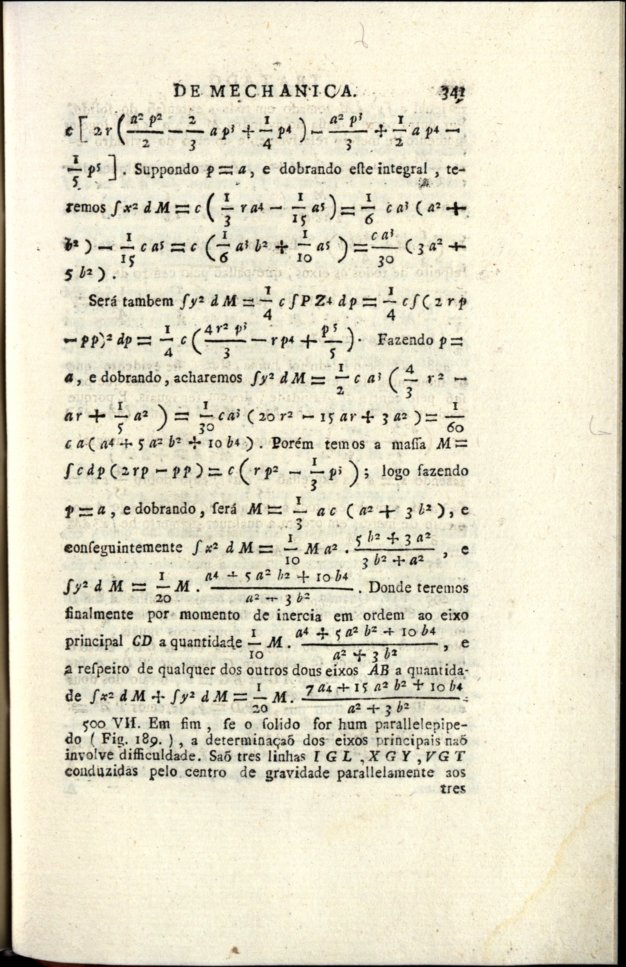 DE MECHANICA. 341
c [ 2r ( a² p² / 2 — 2/3 a p³ + 1/4 p⁴ ) — a² p³ / 3 + 1/2 a p⁴ —
1/5 p⁵ ] . Suppondo p = a, e dobrando eſte integral, te-
remos ∫x² d M = c ( 1/3 r a⁴ — 1/15 a⁵ ) = 1/6 c a³ ( a² +
b² ) — 1/15 c a⁵ = c ( 1/6 a³ b² + 1/10 a⁵ ) = c a³ / 30 ( 3 a² +
5 b² ) .
Será tambem ∫y² d M = 1/4 c ∫P Z⁴ dp = 1/4 c∫( 2 r p
— pp)² dp = 1/4 c ( 4 r² p³ / 3 — r p⁴ + p⁵ / 5 ) . Fazendo p =
a, e dobrando, acharemos ∫y² d M = 1/2 c a³ ( 4/3 r² —
ar + 1/5 a² ) = 1/30 c a³ ( 20 r² — 15 ar + 3 a² ) = 1/60
c a ( a⁴ + 5 a² b² + 10 b⁴ ) . Porém temos a maſſa M =
∫c dp ( 2rp — pp ) = c ( r p² — 1/3 p³ ) ; logo fazendo
p = a, e dobrando, ſerá M = 1/3 a c ( a² + 3 b² ), e
conſeguintemente ∫ x² d M = 1/10 M a² . 5 b² + 3 a² / 3 b² + a² , e
∫y² d M = 1/20 M . a⁴ + 5 a² b² + 10 b⁴ / a² + 3 b² . Donde teremos
finalmente por momento de inercia em ordem ao eixo
principal CD a quantidade 1/10 M . a⁴ + 5 a² b² + 10 b⁴ / a² + 3 b² , e
a reſpeito de qualquer dos outros dous eixos AB a quantida-
de ∫x² d M + ∫y² d M = 1/20 M . 7 a⁴ + 15 a² b² + 10 b⁴ / a² + 3 b²
500 VII. Em fim, ſe o ſolido for hum parallelepipe-
do ( Fig. 189. ) , a determinaçaõ dos eixos principais naõ
involve difficuldade. Saõ tres linhas I G L , X G Y , V G T
conduzidas pelo centro de gravidade parallelamente aos
tres